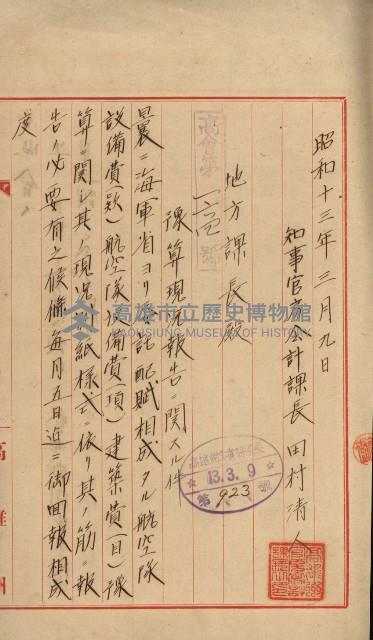 昭和十三年三月九日
知事官房会計課長 田村清人
地方課長殿
高会第 一〇 号
豫算現況報告ニ関スル件
曩ニ海軍省ヨリ委託配賦相成タル航空隊
設備費(款)航空隊設備費(項)建築費(目)豫
算ニ関シ其ノ現況別紙様式ニ依リ其ノ筋ニ報
告ノ必要有之候條毎月五日迄ニ御回報相成
度
13.3.9
第 923 號
高雄市立歷史博物館
KAOHSIUNG MUSEUM OF HISTORY
高雄州